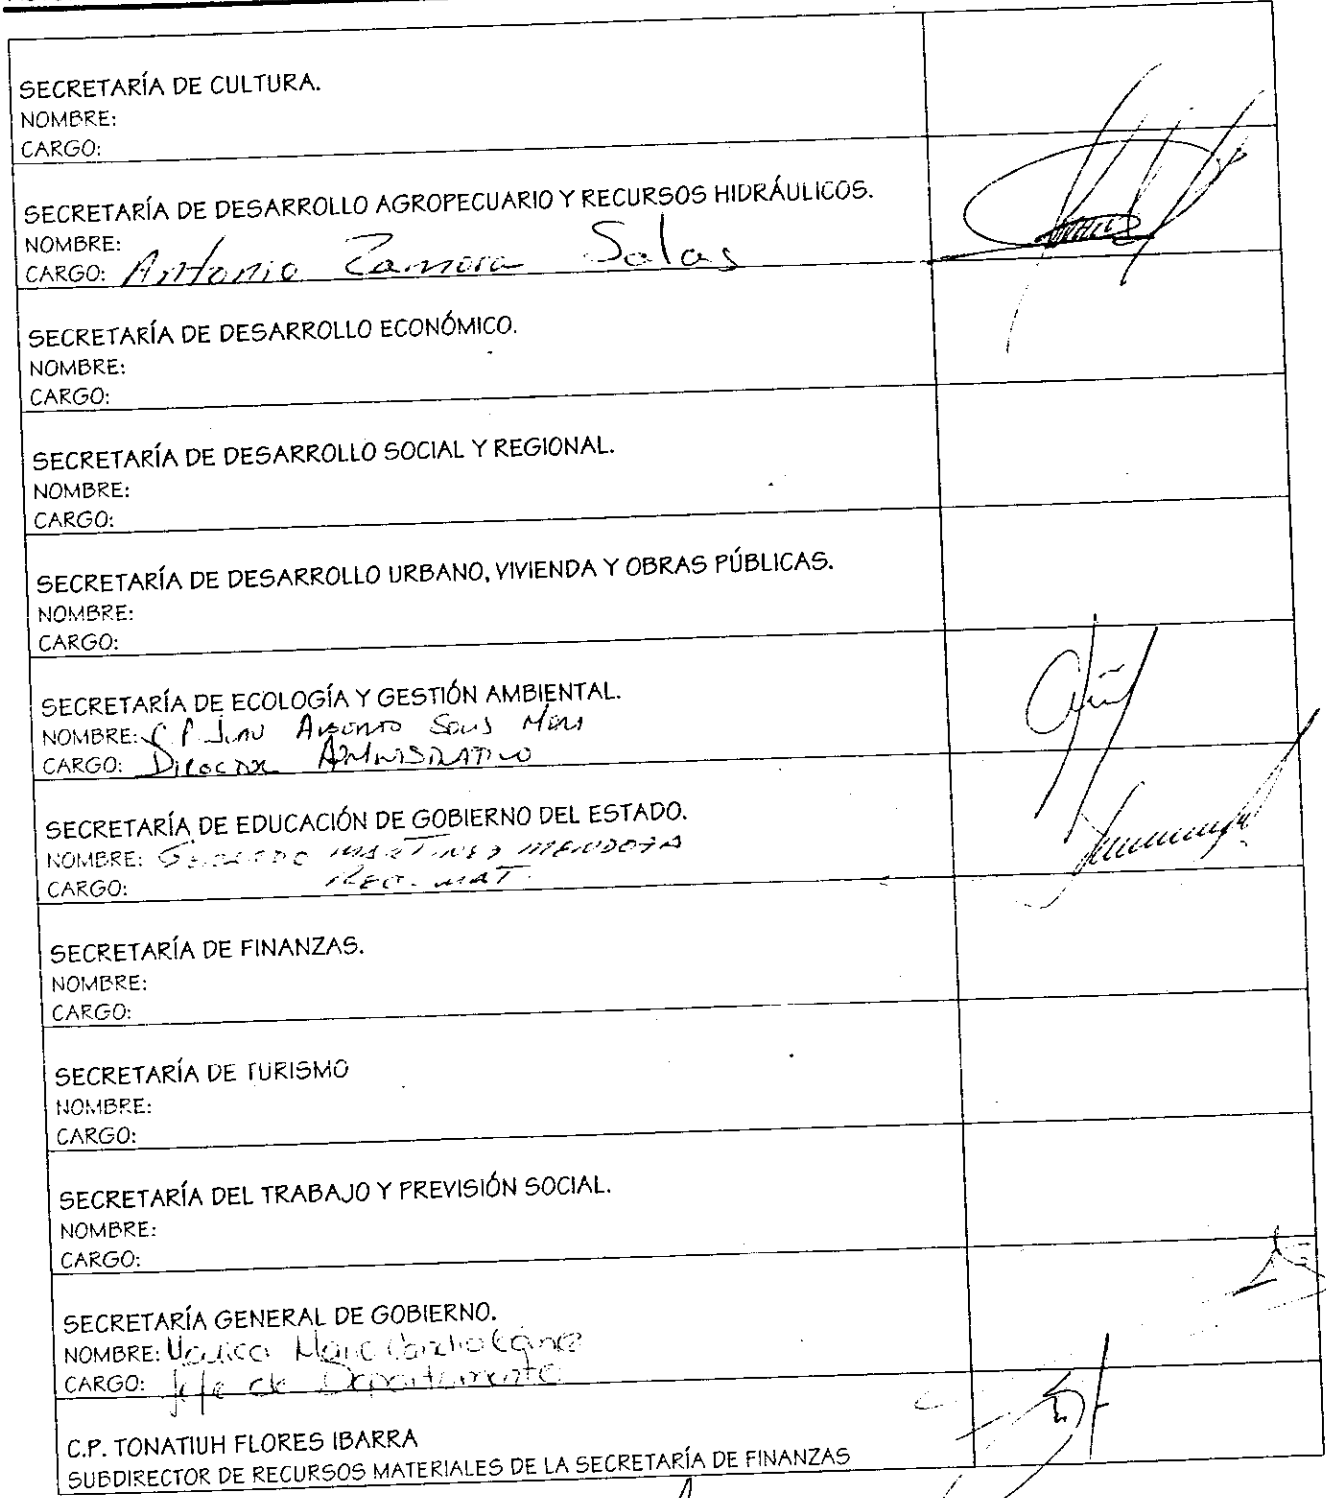 SECRETARÍA DE CULTURA.
NOMBRE:
CARGO:
SECRETARÍA DE DESARROLLO AGROPECUARIO Y RECURSOS HIDRÁULICOS.
NOMBRE:
CARGO: Antonio Zamora Salas
SECRETARÍA DE DESARROLLO ECONÓMICO.
NOMBRE:
CARGO:
SECRETARÍA DE DESARROLLO SOCIAL Y REGIONAL.
NOMBRE:
CARGO:
SECRETARÍA DE DESARROLLO URBANO, VIVIENDA Y OBRAS PÚBLICAS.
NOMBRE:
CARGO:
SECRETARÍA DE ECOLOGÍA Y GESTIÓN AMBIENTAL.
NOMBRE: C P
CARGO: Director Administrativo
SECRETARÍA DE EDUCACIÓN DE GOBIERNO DEL ESTADO.
NOMBRE: MARTINEZ MENDOZA
CARGO: REC. MAT.
SECRETARÍA DE FINANZAS.
NOMBRE:
CARGO:
SECRETARÍA DE TURISMO
NOMBRE:
CARGO:
SECRETARÍA DEL TRABAJO Y PREVISIÓN SOCIAL.
NOMBRE:
CARGO:
SECRETARÍA GENERAL DE GOBIERNO.
NOMBRE:
CARGO: Jefe de Departamento
C.P. TONATIUH FLORES IBARRA
SUBDIRECTOR DE RECURSOS MATERIALES DE LA SECRETARÍA DE FINANZAS